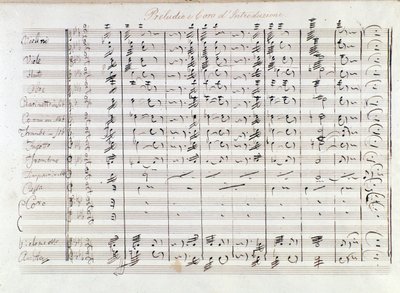 Preludio e Coro d'Introduzione
Violini
Viole
Flauti
Oboe
Clarinetti
Corni in
Trombe in
Fagotti
Tromboni
Timpani
Cassa
Coro
Violoncello